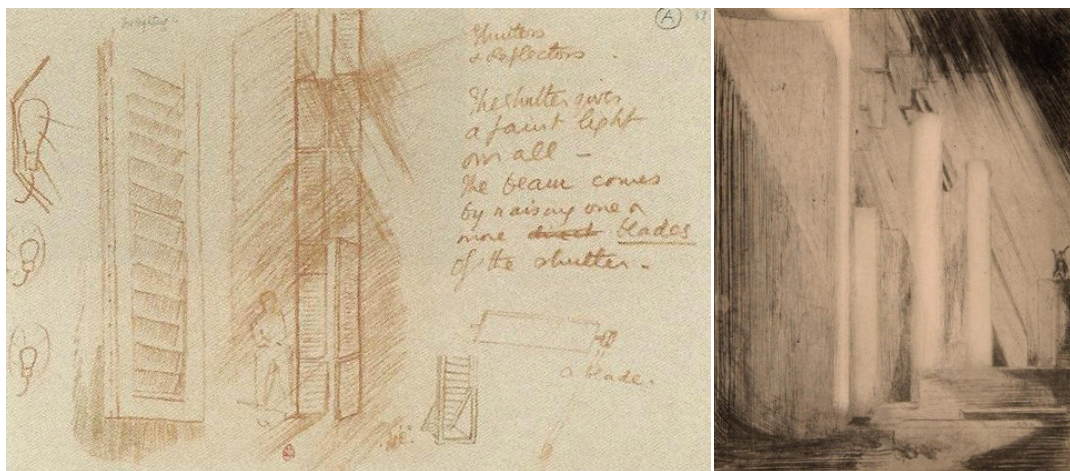 for lighting
A
Shutters
& Reflectors.
The shutter gives
a faint light
on all –
The beam comes
by raising one or
more direct blades
of the shutter –
a blade.